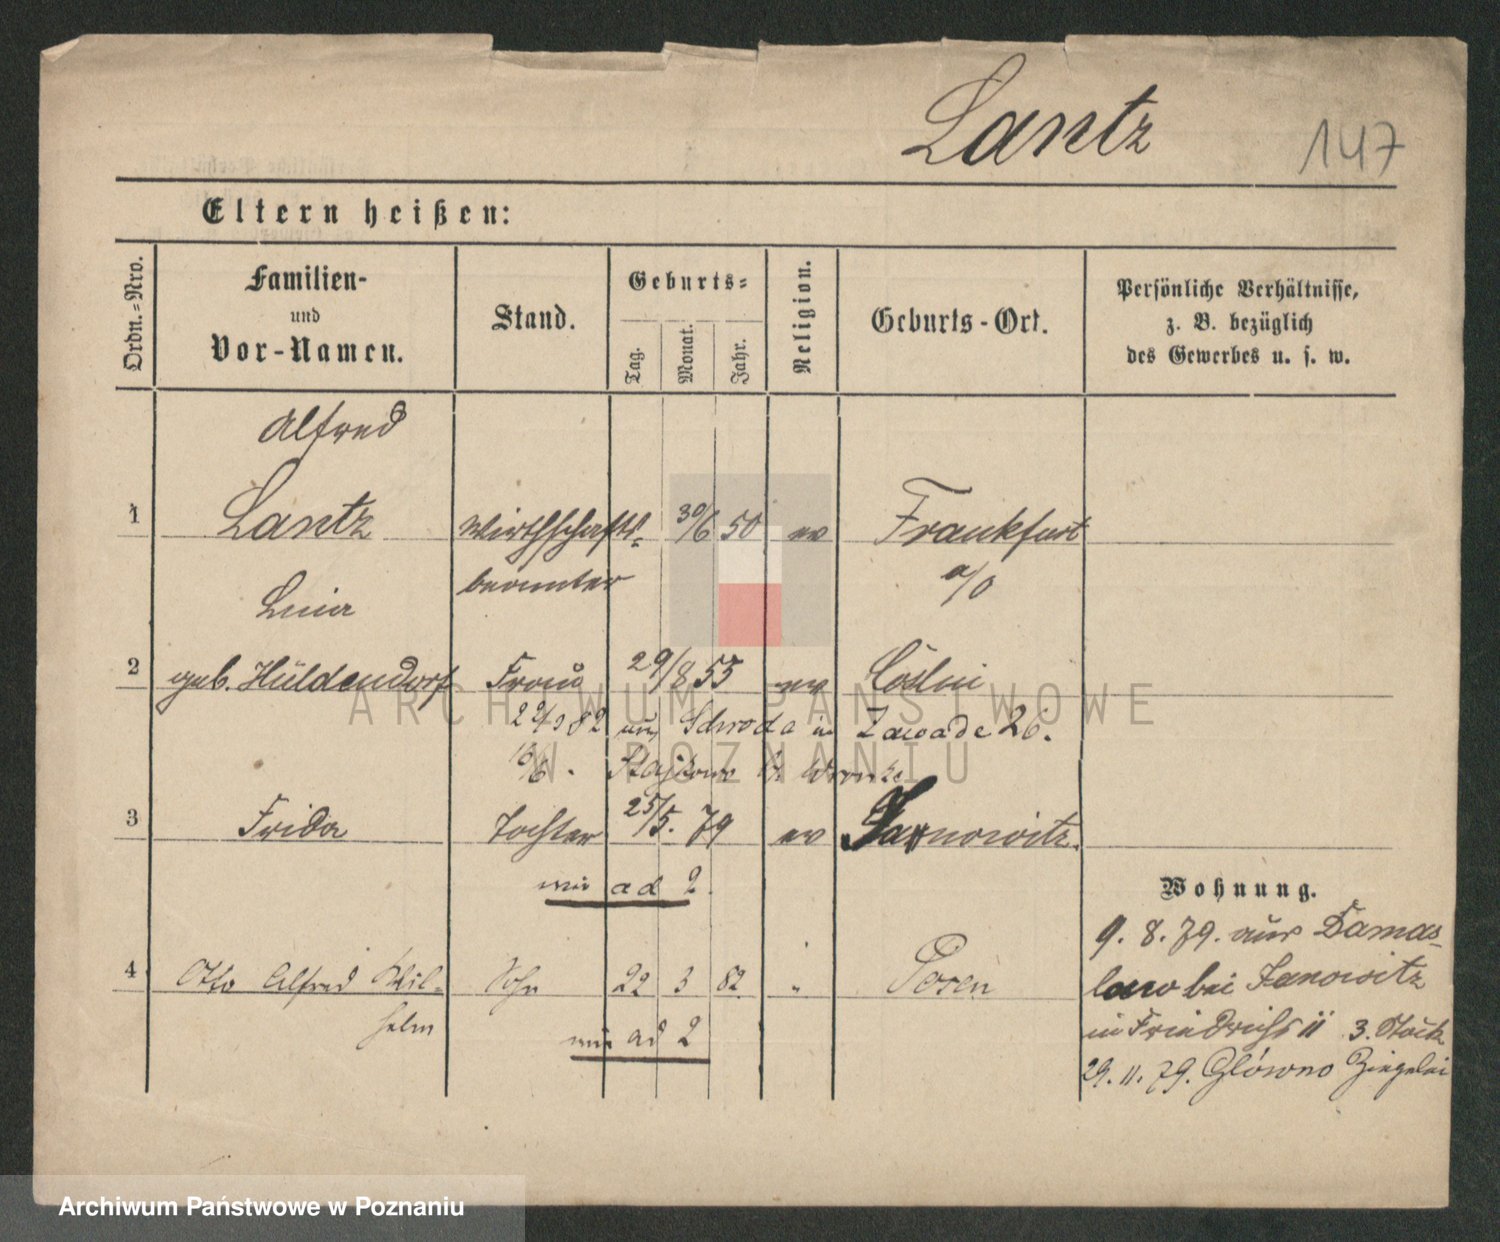 Lantz 147
Eltern heißen:
Ordn.-Nro.
Familien-
und
Vor-Namen.
Stand.
Geburts-
Tag. Monat. Jahr.
Religion.
Geburts-Ort.
Persönliche Verhältnisse,
z. B. bezüglich
des Gewerbes u. s. w.
Alfred
1 Lantz Wirthschafts- 30/6 50 ev Frankfurt
beamter a/O
2 geb. Hüldendorf Frau 29/8 55 ev Cöslin
82 Schroda in Zawade 26.
3 Frida Tochter 25/5. 79 ev Janowitz.
ad 2.
Wohnung.
9. 8. 79. aus Damas-
4 Otto Alfred Wil- Sohn 22 3 82 " Posen
law bei Janowitz
helm
ad 2
in Friedrichstr 11 3. Stock
29. 11. 79. Glówno Ziegelei
ARCHIWUM PAŃSTWOWE
W POZNANIU
Archiwum Państwowe w Poznaniu